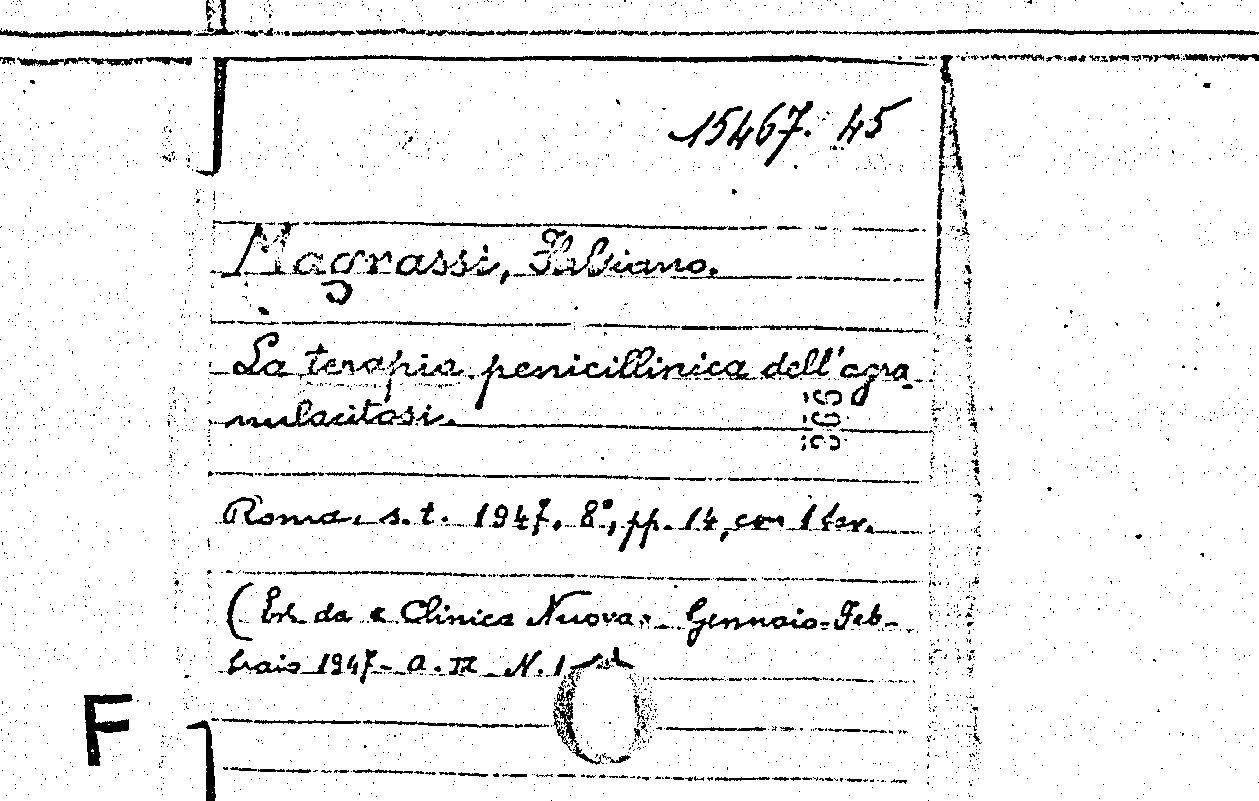 15467. 45
Magrassi, Fabiano.
La terapia penicillinica dell'agra-
nulocitosi.
Roma, s.t. 1947. 8°, pp. 14, con 1 tav.
(Estr. da « Clinica Nuova». Gennaio-Feb-
braio 1947- a. III N. 1
F